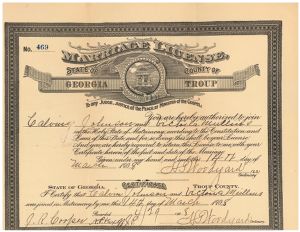 No. 469
MARRIAGE LICENSE.
STATE OF COUNTY OF
GEORGIA TROUP
To any Judge, Justice of the Peace or Minister of the Gospel
You are hereby authorized to join
Calvin Johnson and Victoria Mullins
in the Holy State of Matrimony, according to the Constitution and
Laws of this State and for so doing this shall be your License
And you are hereby required to return this License to me with your
Certificate hereon of the fact and date of the Marriage.
Given under my hand and seal this 14th day
March 1908
STATE OF GEORGIA, CERTIFICATE TROUP COUNTY.
I Certify that Calvin Johnson and Victoria Mullins
were joined in Matrimony by me this 14th day of March 1908
Recorded